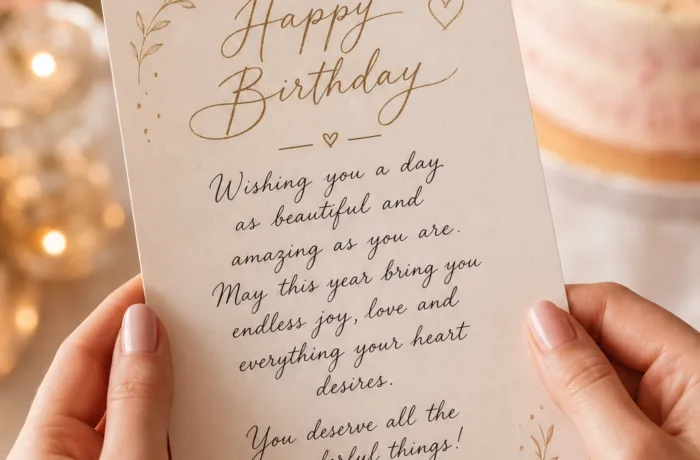 Happy
Birthday
Wishing you a day
as beautiful and
amazing as you are.
May this year bring you
endless joy, love and
everything your heart
desires.
You deserve all the
things!